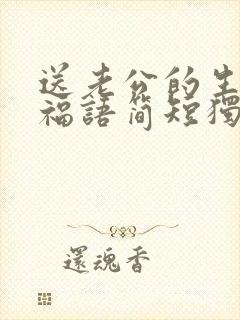 送老公的生
福語簡短獨
還魂香